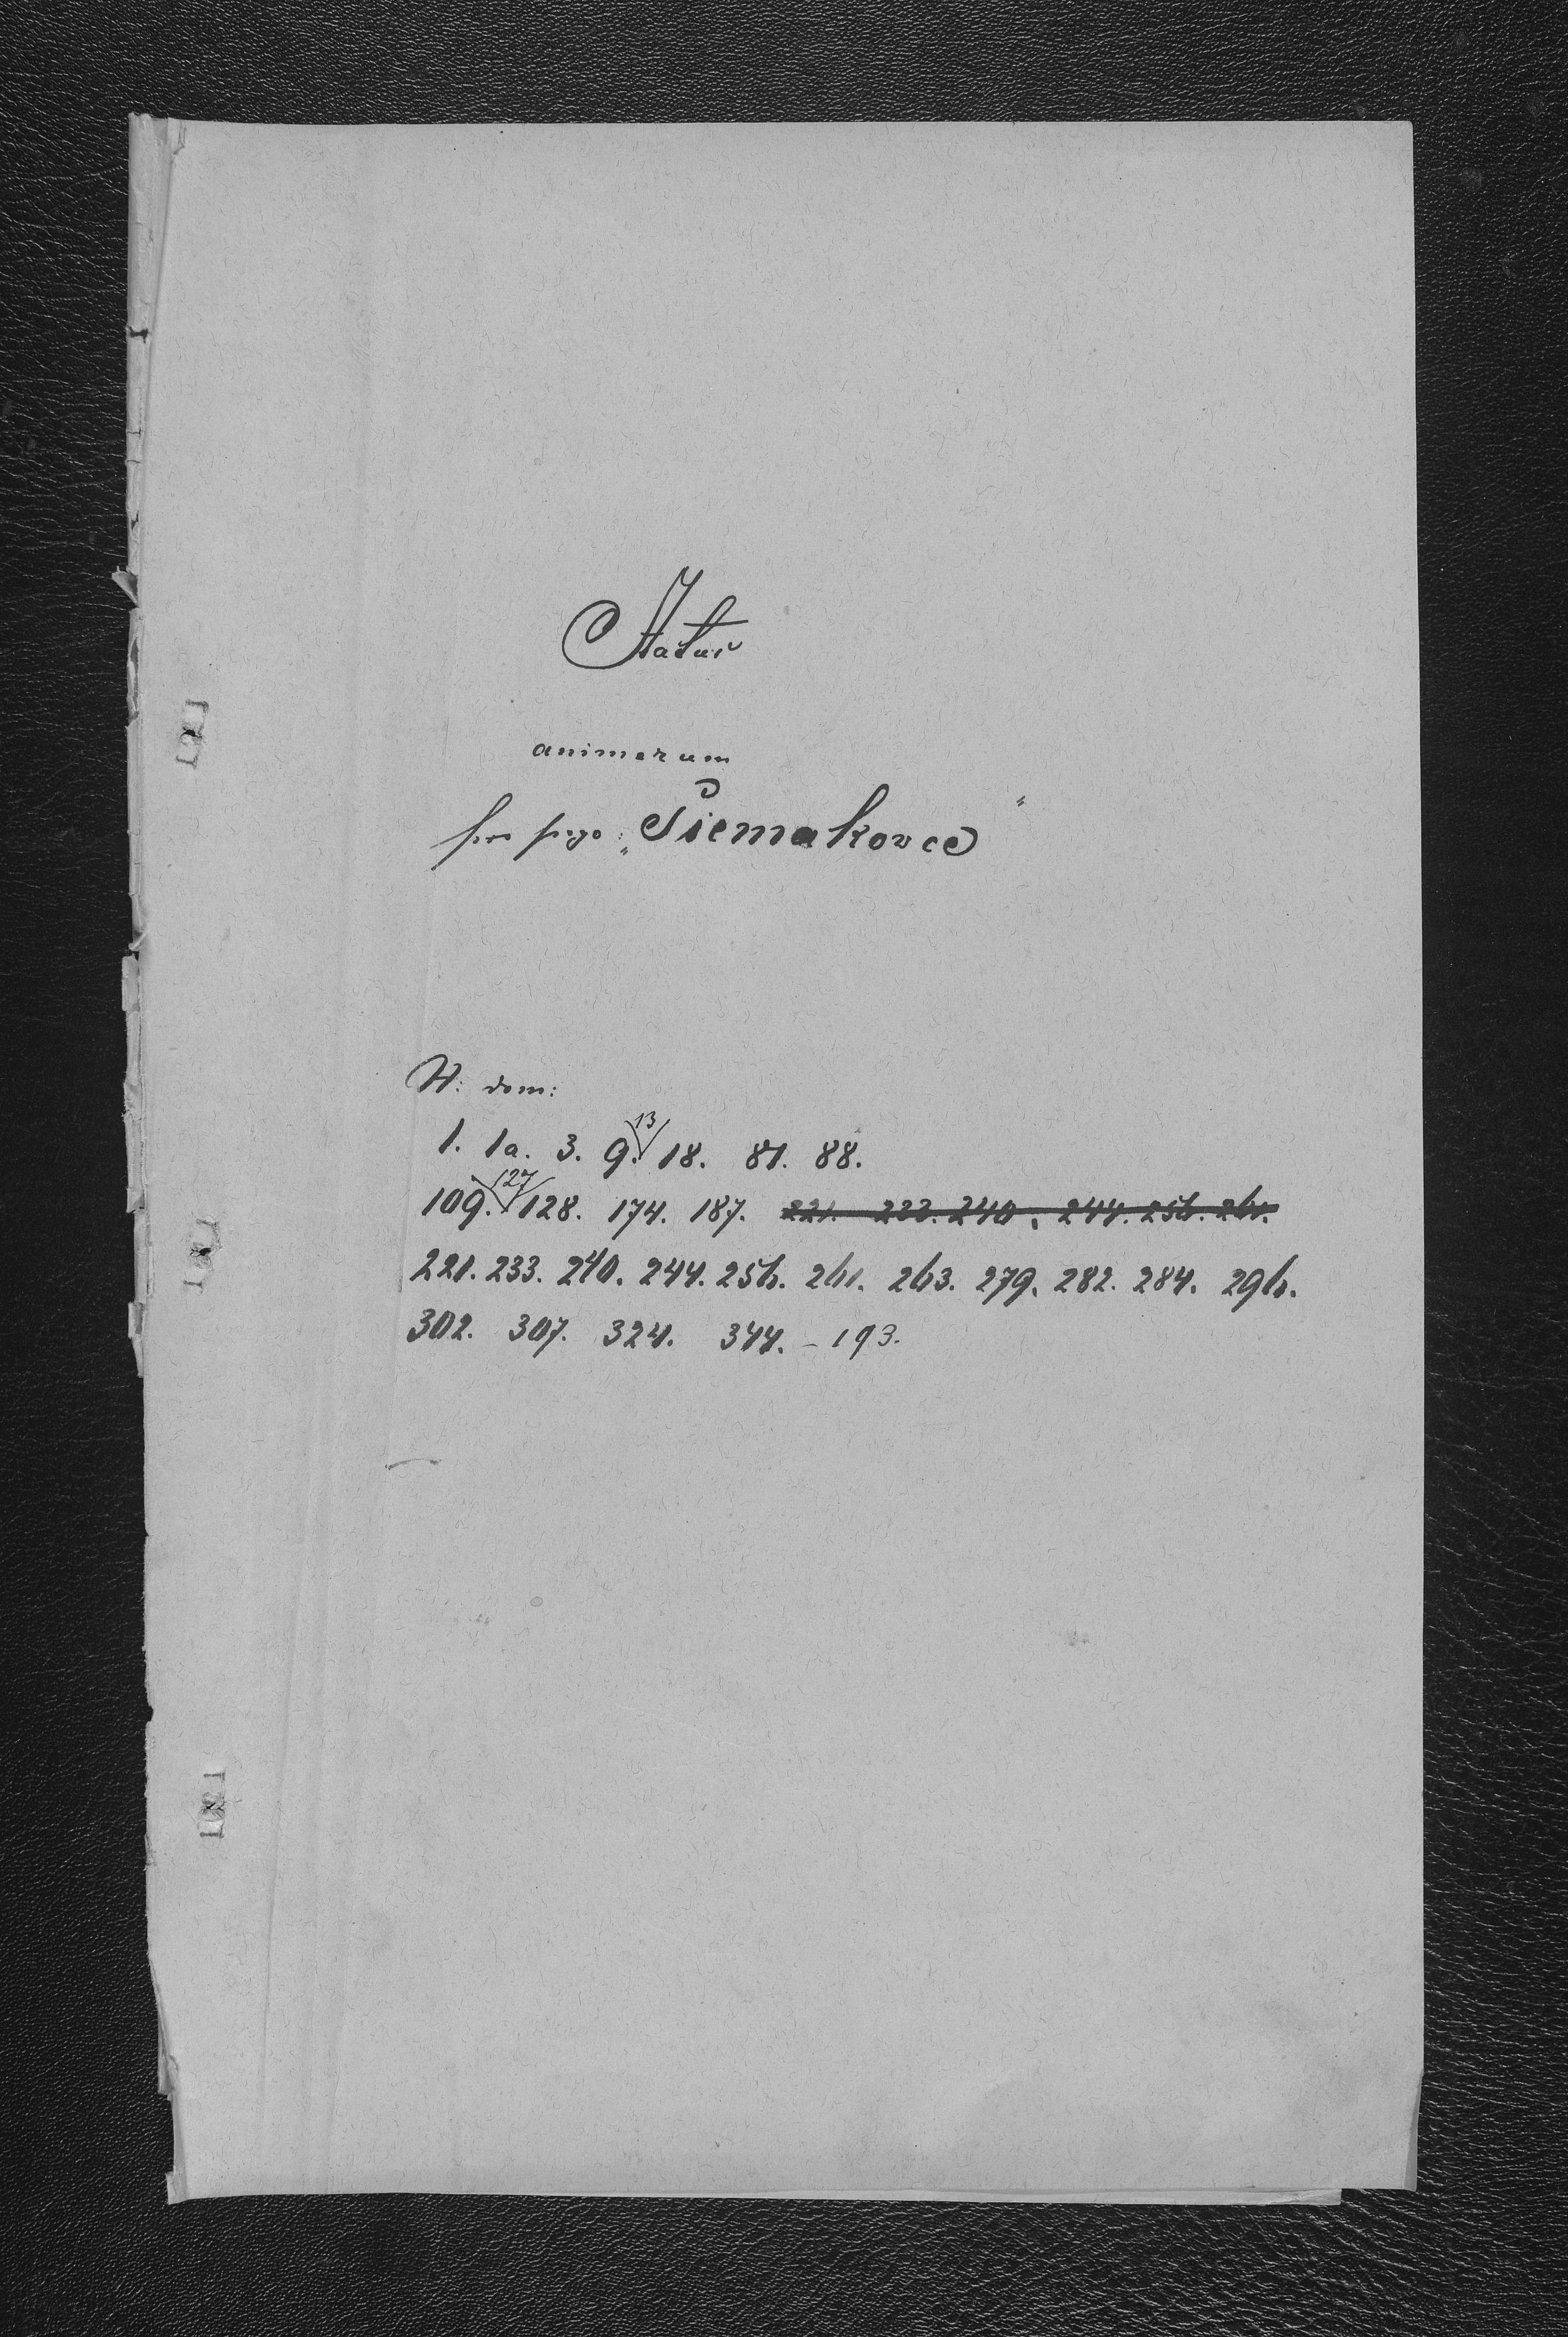 Status
animarum
pro pago „Siemakowce"
N: dom:
1. 1a. 3. 9. 13 18. 81. 88.
109. 127 128. 174. 187. 221. 233. 240. 244. 256. 261.
221. 233. 240. 244. 256. 261. 263. 279. 282. 284. 296.
302. 307. 324. 344. - 193.